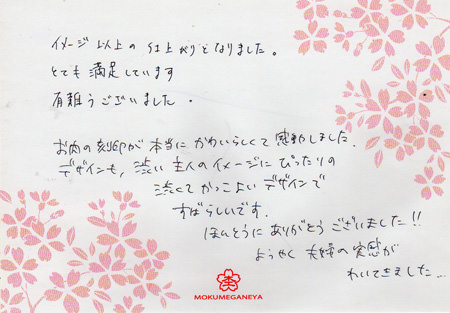 イメージ以上の仕上がりとなりました。
とても満足しています
有難うございました。
お肉の刻印が本当にかわいらしくて感動しました。
デザインも、渋い主人のイメージにぴったりの
渋くてかっこよいデザインで
すばらしいです。
ほんとうにありがとうございました!!
ようやく夫婦の実感が
わいてきました…
MOKUMEGANEYA